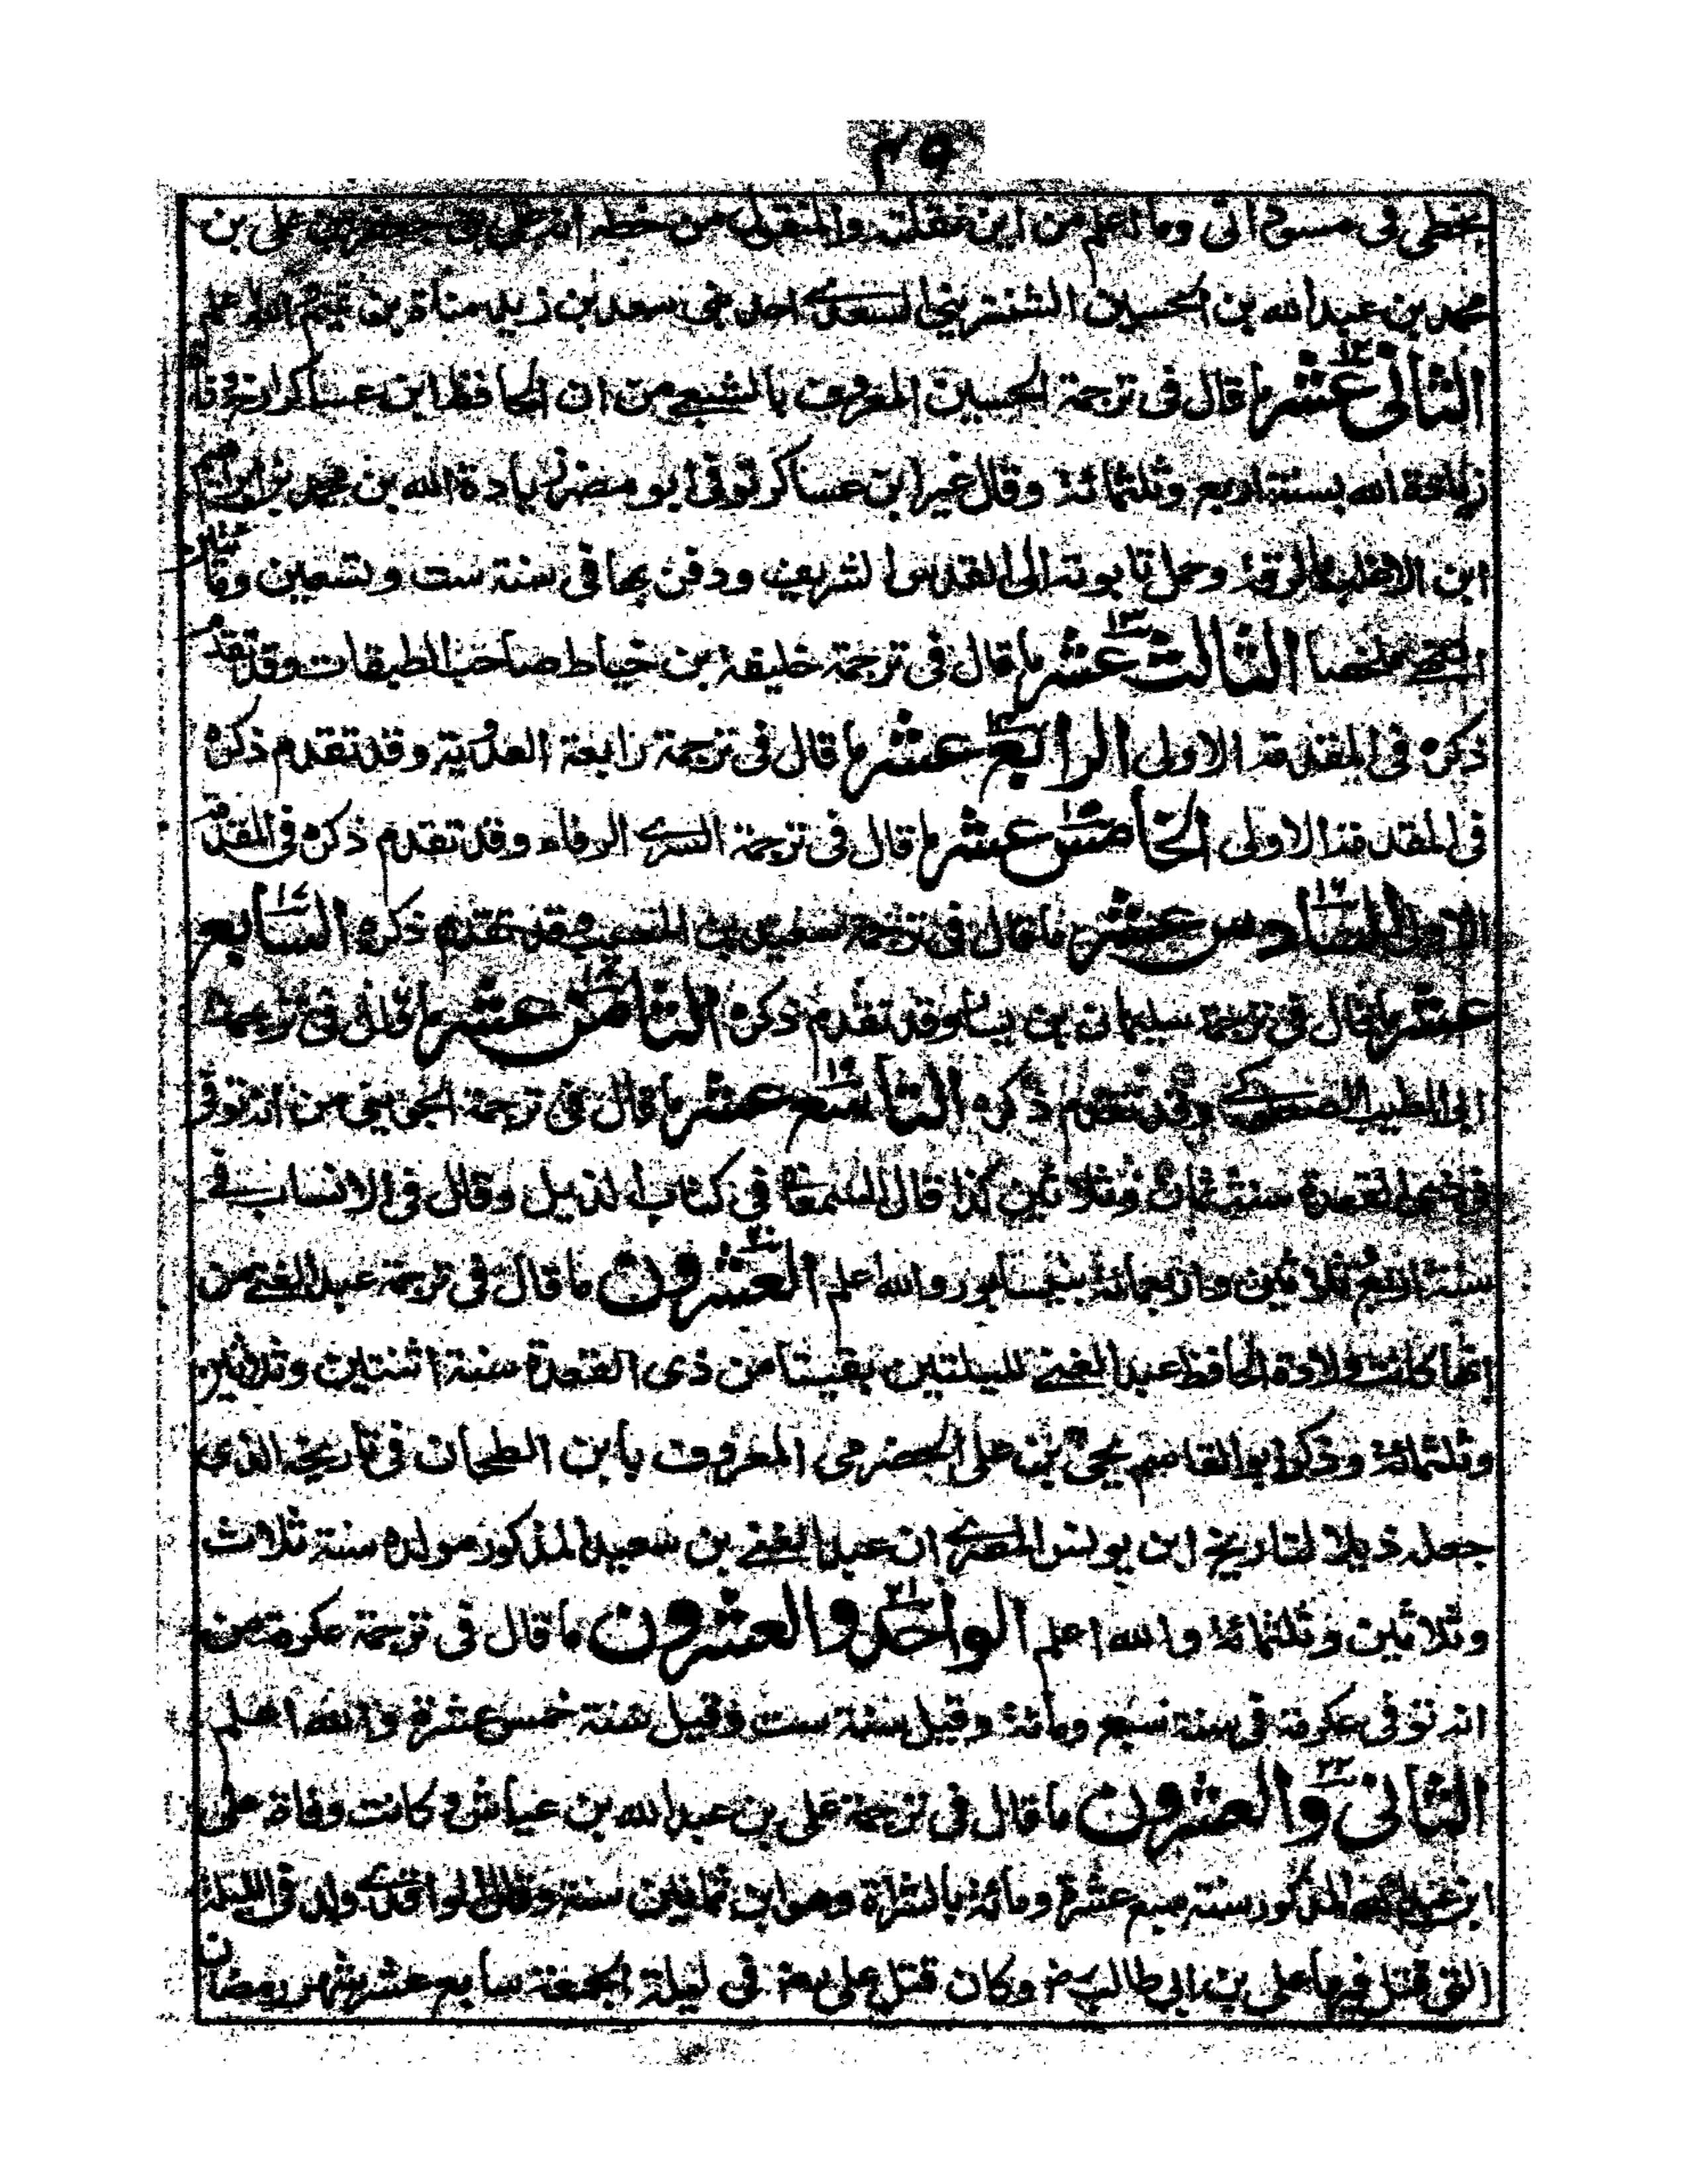 ٣٩
بخطى فى مسوداتى وما اعلم من اين نقلته والمنقول من خطه انه على بن جعفر بن على بن
محمد بن عبد الله بن الحسين الشنترينى السعدى احد بنى سعد بن زيد مناة بن تميم والله اعلم
الثانى عشر ١٢ ما قال فى ترجمة الحسين المعروف بالشيعى من ان الحافظ ابن عساكر ارخ وفاة
زيادة الله بسنة اربع وثلثمائة وقال غير ابن عساكر توفى ابو مضر زيادة الله بن محمد بن ابراهيم
ابن الاغلب بالرقة وحمل تابوته الى القدس الشريف ودفن بها فى سنة ست وتسعين ومائتين
انتهى ملخصا الثالث عشر ١٣ ما قال فى ترجمة خليفة بن خياط صاحب الطبقات وقد تقدم
ذكره فى المقدمة الاولى الرابع عشر ١٤ ما قال فى ترجمة رابعة العدوية وقد تقدم ذكره
فى المقدمة الاولى الخامس عشر ١٥ ما قال فى ترجمة السرى الرفاء وقد تقدم ذكره فى المقدمة
الاولى السادس عشر ١٦ ما قال فى ترجمة سعيد بن المسيب وقد تقدم ذكره السابع ١٧
عشر ما قال فى ترجمة سليمان بن يسار وقد تقدم ذكره الثامن عشر ١٨ ما قال فى ترجمة
ابى الطيب الصعلوكى وقد تقدم ذكره التاسع عشر ١٩ ما قال فى ترجمة الجوينى من انه توفى
فى ذى القعدة سنة ثمان وثلاثين كذا قال السمعانى فى كتاب الذيل وقال فى الانساب فى
سنة اربع ثلاثين واربعمائة بنيسابور والله اعلم العشرون ٢٠ ما قال فى ترجمة عبد الغنى من
انها كانت ولادة الحافظ عبد الغنى لليلتين بقيتا من ذى القعدة سنة اثنتين وثلاثين
وثلثمائة وذكر ابو القاسم يحيى بن على الحضرمى المعروف بابن الطحان فى تاريخه الذى
جعله ذيلا لتاريخ ابن يونس المصرى ان عبد الغنى بن سعيد المذكور مولده سنة ثلاث
وثلاثين وثلثمائة والله اعلم الواحد والعشرون ٢١ ما قال فى ترجمة عكرمة من
انه توفى عكرمة فى سنة سبع ومائة وقيل سنة ست وقيل سنة خمس عشرة والله اعلم
الثانى والعشرون ٢٢ ما قال فى ترجمة على بن عبد الله بن عباس وكانت وفاة على
ابن عبد الله المذكور سنة سبع عشرة ومائة بالشراة وهو ابن ثمانين سنة وقال الواقدى ولد فى الليلة
التى قتل فيها على بن ابى طالب رض وكان قتل على رض فى ليلة الجمعة سابع عشر شهر رمضان